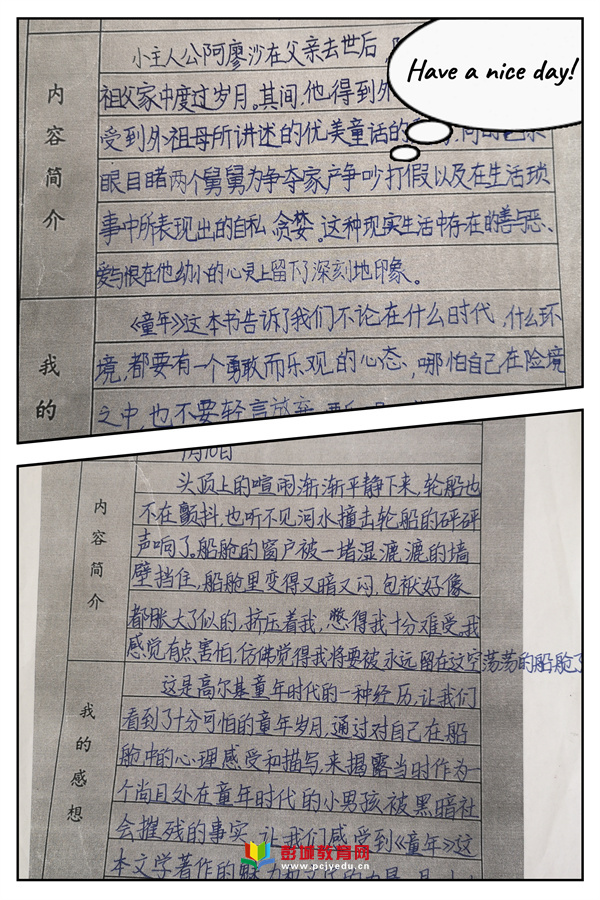 小主人公阿廖沙在父亲去世后，
Have a nice day!
内容简介
祖父家中度过岁月。其间,他得到外
受到外祖母所讲述的优美童话的
眼目睹两个舅舅为争夺家产争吵打假以及在生活琐
事中所表现出的自私 贪婪。这种现实生活中存在的善与恶、
爱与恨在他幼小的心灵上留下了深刻地印象。
我的
《童年》这本书告诉了我们不论在什么时代,什么环
境,都要有一个勇敢而乐观的心态,哪怕自己在险境
之中,也不要轻言放弃
月10日
内容简介
头顶上的喧闹渐渐平静下来,轮船也
不在颤抖,也听不见河水撞击轮船的砰砰
声响了。船舱的窗户被一堵湿漉漉的墙
壁挡住,船舱里变得又暗又闷,包袱好像
都胀大了似的,挤压着我,憋得我十分难受。我
感觉有点害怕,仿佛觉得我将要被永远留在这空荡荡的船舱了
我的感想
这是高尔基童年时代的一种经历,让我们
看到了十分可怕的童年岁月,通过对自己在船
舱中的心理感受和描写,来揭露当时作为一
个尚且处在童年时代的小男孩被黑暗社
会摧残的事实,让我们感受到《童年》这
本文学著作的魅力
彭城教育网
www.pcjyedu.cn